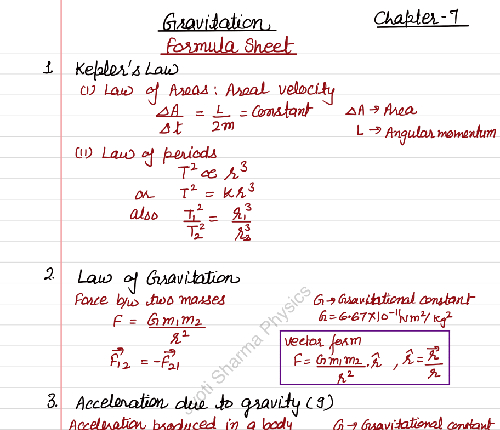 Gravitation
Chapter-7
Formula Sheet
1. Kepler's Law
(i) Law of Areas: Areal velocity
ΔA/Δt = L/2m = Constant
ΔA → Area
L → Angular momentum
(ii) Law of periods
T² ∝ r³
or T² = kr³
also T₁²/T₂² = r₁³/r₂³
2. Law of Gravitation
Force b/w two masses
G → Gravitational constant
F = Gm₁m₂/r²
G = 6.67×10⁻¹¹Nm²/kg²
F⃗₁₂ = -F⃗₂₁
vector form
F = Gm₁m₂/r² . r̂ , r̂ = r⃗/r
Jyoti Sharma Physics
3. Acceleration due to gravity (g)
Acceleration produced in a body
G → Gravitational constant